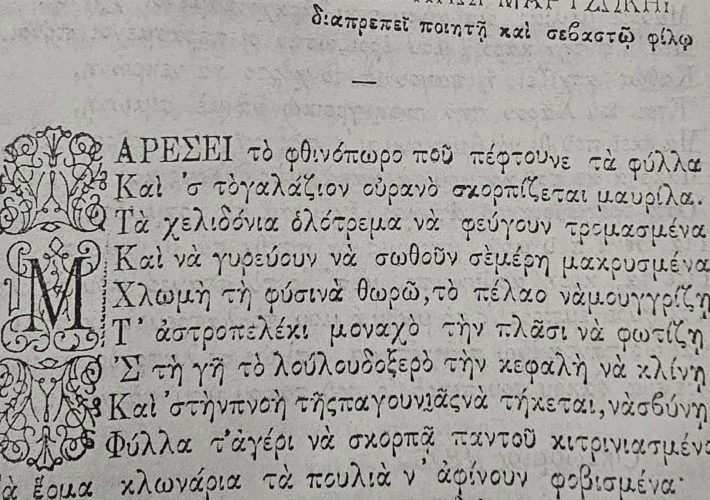 διαπρεπεῖ ποιητῇ καὶ σεβαστῷ φίλῳ
ΜΑΡΕΣΕΙ τὸ φθινόπωρο ποῦ πέφτουνε τὰ φύλλα
Καὶ 'ς τὸγαλάζιον οὐρανὸ σκορπίζεται μαυρίλα.
Τὰ χελιδόνια ὁλότρεμα νὰ φεύγουν τρομασμένα
Καὶ νὰ γυρεύουν νὰ σωθοῦν σὲμέρη μακρυσμένα
Χλωμὴ τὴ φύσινὰ θωρῶ, τὸ πέλαο νὰμουγγρίζῃ
Τ' ἀστροπελέκι μοναχὸ τὴν πλᾶσι νὰ φωτίζῃ
'Σ τὴ γῆ τὸ λούλουδοξερὸ τὴν κεφαλὴ νὰ κλίνῃ
Καὶ 'στὴνπνοὴ τῆςπαγουνιᾶςνὰ τήκεται, νὰσβύνῃ
Φύλλα τ'ἀγέρι νὰ σκορπᾷ παντοῦ κιτρινιασμένα
ἔρμα κλωνάρια τὰ πουλιὰ ν' ἀφίνουν φοβισμένα·